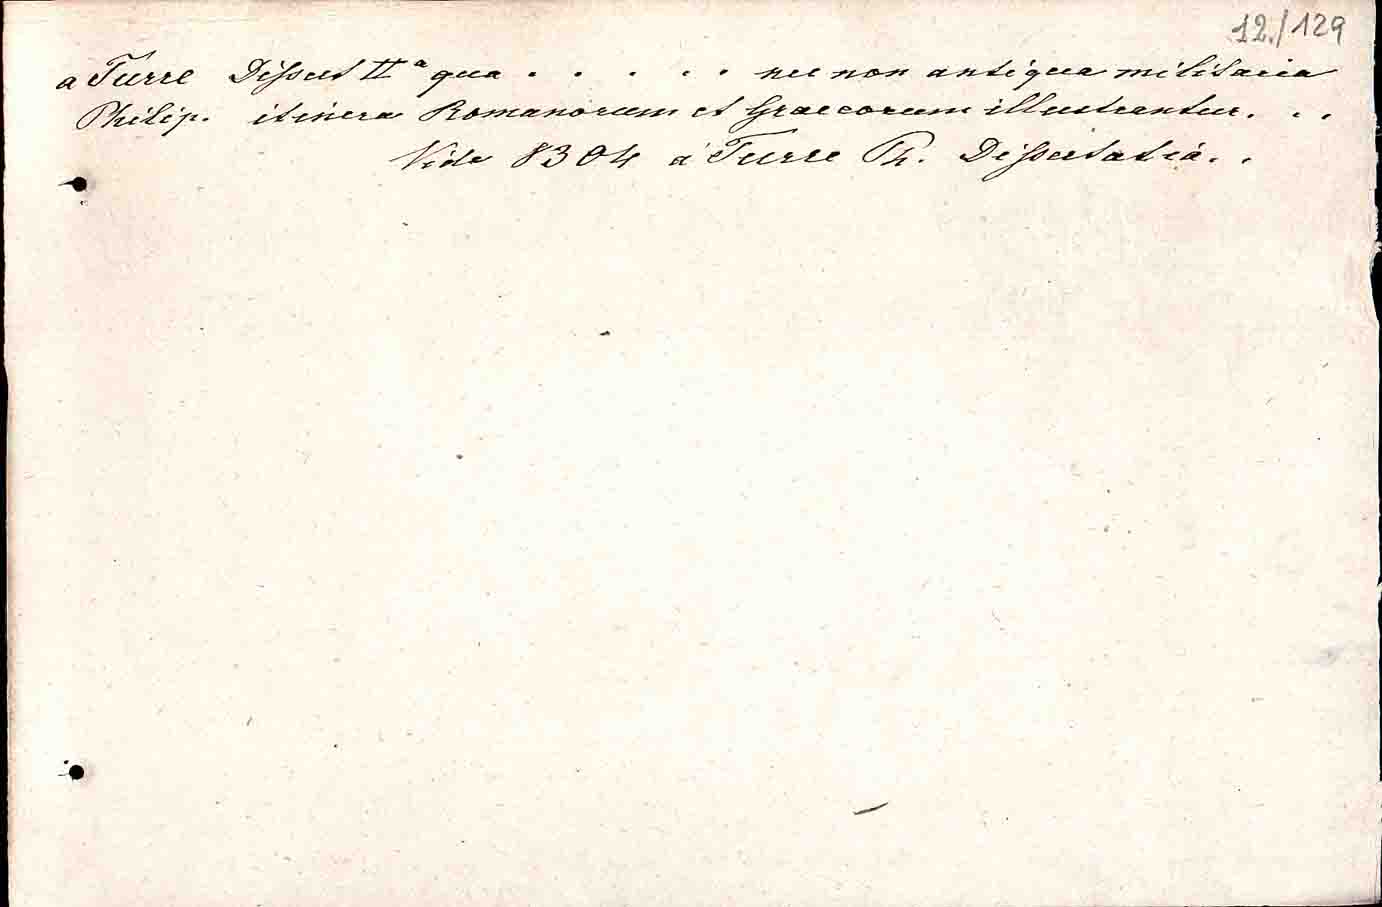 12./129
a Turre Dissert IIª qua . . . . . nec non antiqua militaria
Philip. itinera Romanorum et Graecorum illustrantur. . .
Vide 8304 á Turre Ph. Dissertatio. .